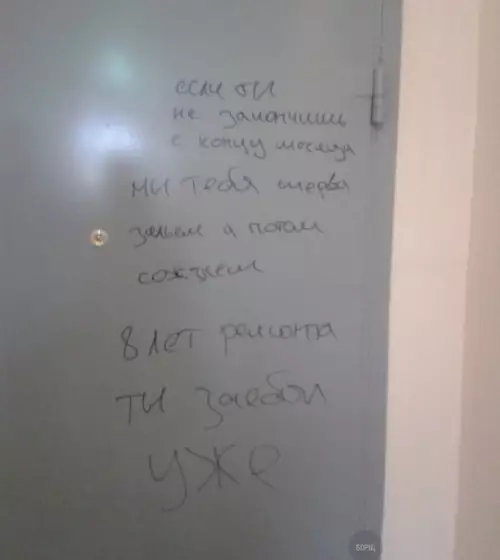 если ти
не закончишь
к концу месяца
ми тебя шерва
зальем а потом
сожжем
8 лет ремонта
ти заебал
уже
БОРЩ